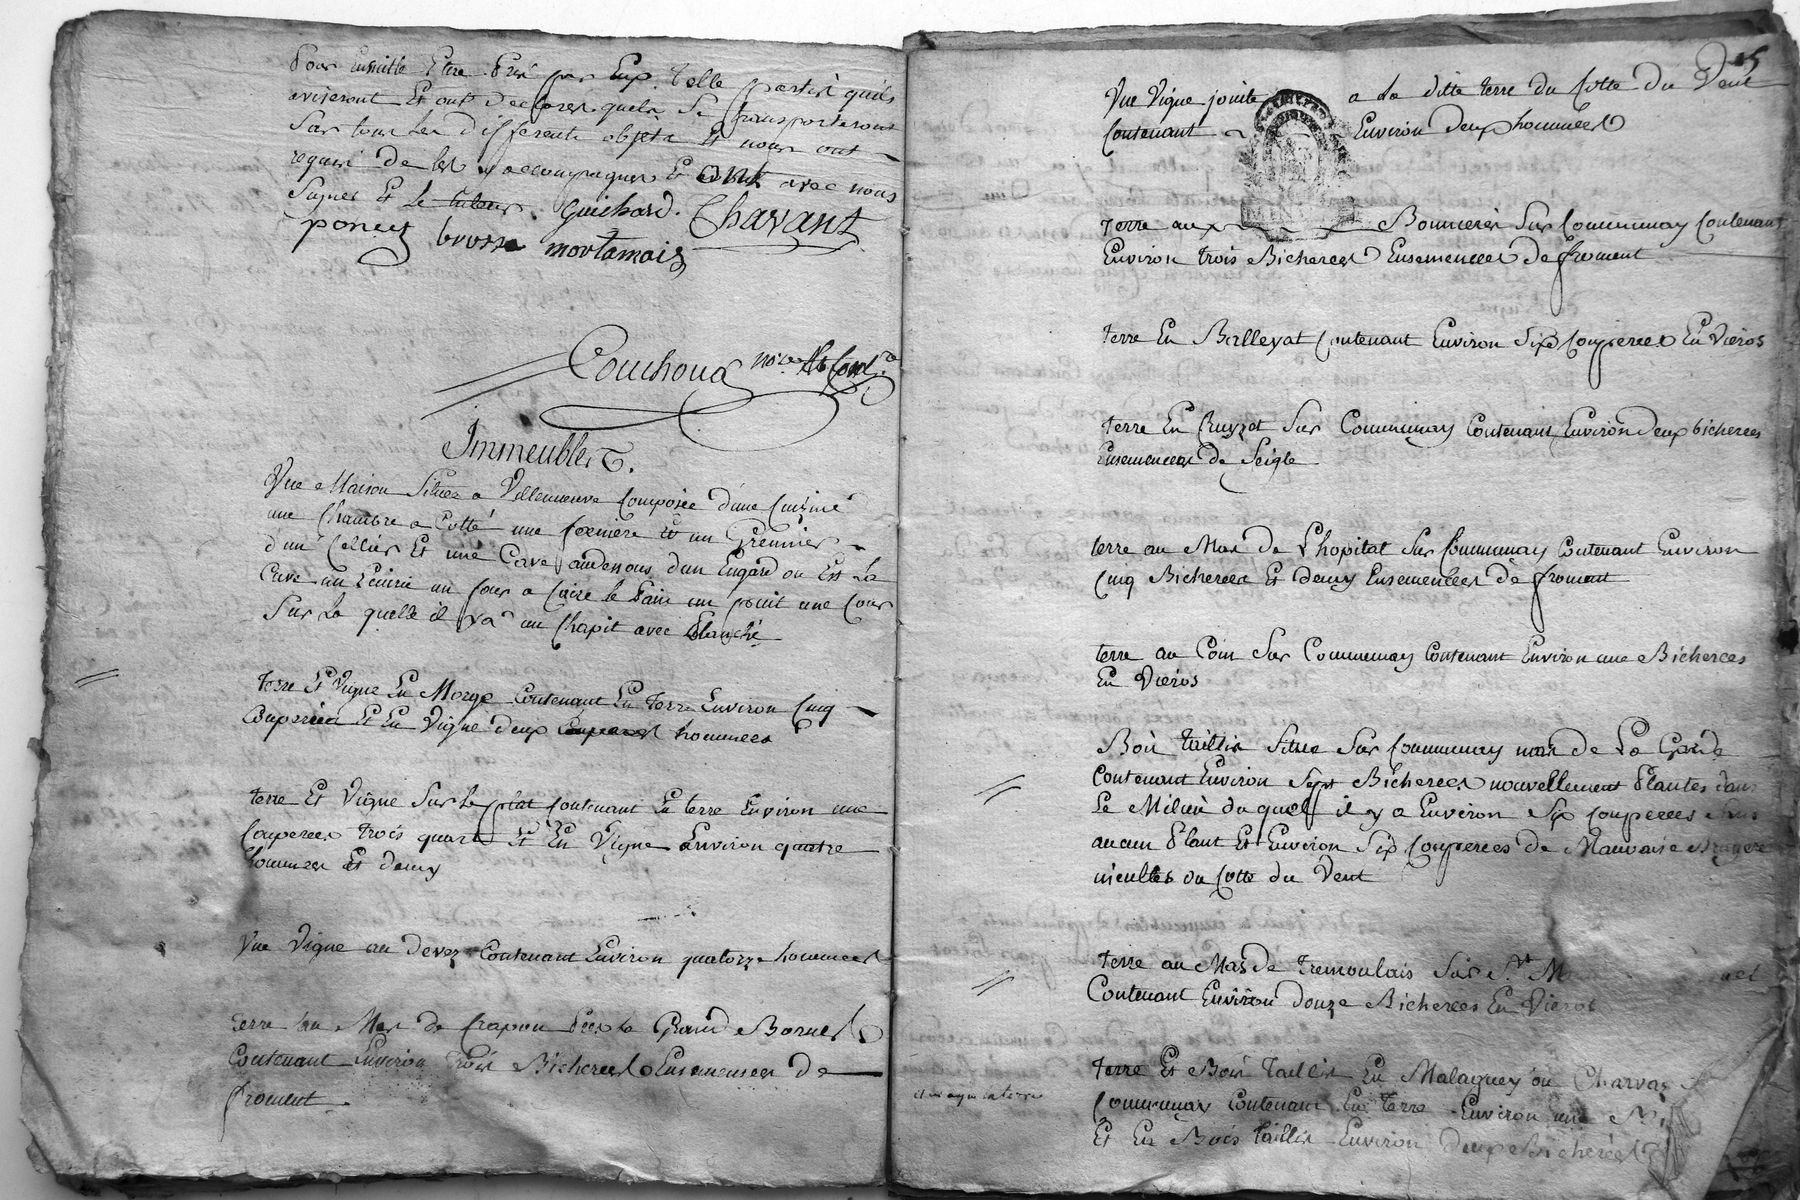 Pour Ensuitte Etre Pris par Eux Telle partis quils
aviseront Et ont declarer quels Se transporteront
Sur tous les differents objets Et nous ont
requis de les y accompagner Et ont avec nous
Signer Et Le tuteur. Guichard. Chavant
poncet brosse mortamais
Couchoud no.re
Immeubles.
Une Maison Situee a Villeneuve Composée d'une Cuizine
une Chambre a Cotté une feniere et un Grennier
d'un Cellier Et une Cave audessous d'un Engard ou Est La
Cave un Ecuirie un four a Cuire le Pain un puit une Cour
Sur La quelle il ya un Chapit avec Planché
terre Et Vigne En Morge Contenant En Terre Environ Cinq
Couperées Et En Vigne deux hommees
terre Et Vigne Sur Le plat Contenant En terre Environ une
Couperees trois quart Et En Vigne Environ quatre
hommees Et demy
Une Vigne au devez Contenant Environ quatorze hommees
terre au Mas de Crapon Pres la Grande Borne
Contenant Environ trois Bicherees Ensemencees de
froment
15
Une Vigne jointe a La ditte terre du Cotte du Vent
Contenant Environ deux hommees
Terre aux Bonneres Sur Communay Contenant
Environ trois Bicherees Ensemencees de froment
terre En Balleyat Contenant Environ Six Couperees En Vieros
terre En Cruyzet Sur Communay Contenant Environ deux bicherees
Ensemencees de Seigle
terre au Mas de Lhopital Sur Communay Contenant Environ
Cinq Bicherees Et demy Ensemencees de froment
terre au Coin Sur Communay Contenant Environ une Bicherees
En Vieros
Bois taillis Situe Sur Communay mas de La Garde
Contenant Environ Sept Bicherees nouvellement Plantes dans
Le Milieu duquel il y a Environ Six Couperees Sans
aucun Plant Et Environ Six Couperees de Mauvaise
incultes du Cotte du Vent
terre au Mas de Tremoulais Sur S.t
Contenant Environ douze Bicherees En Vieros
terre Et Bois Taillis En Malaguey ou Charvas
Communay Contenant En Terre Environ une
Et En Bois taillis Environ deux Bicherées